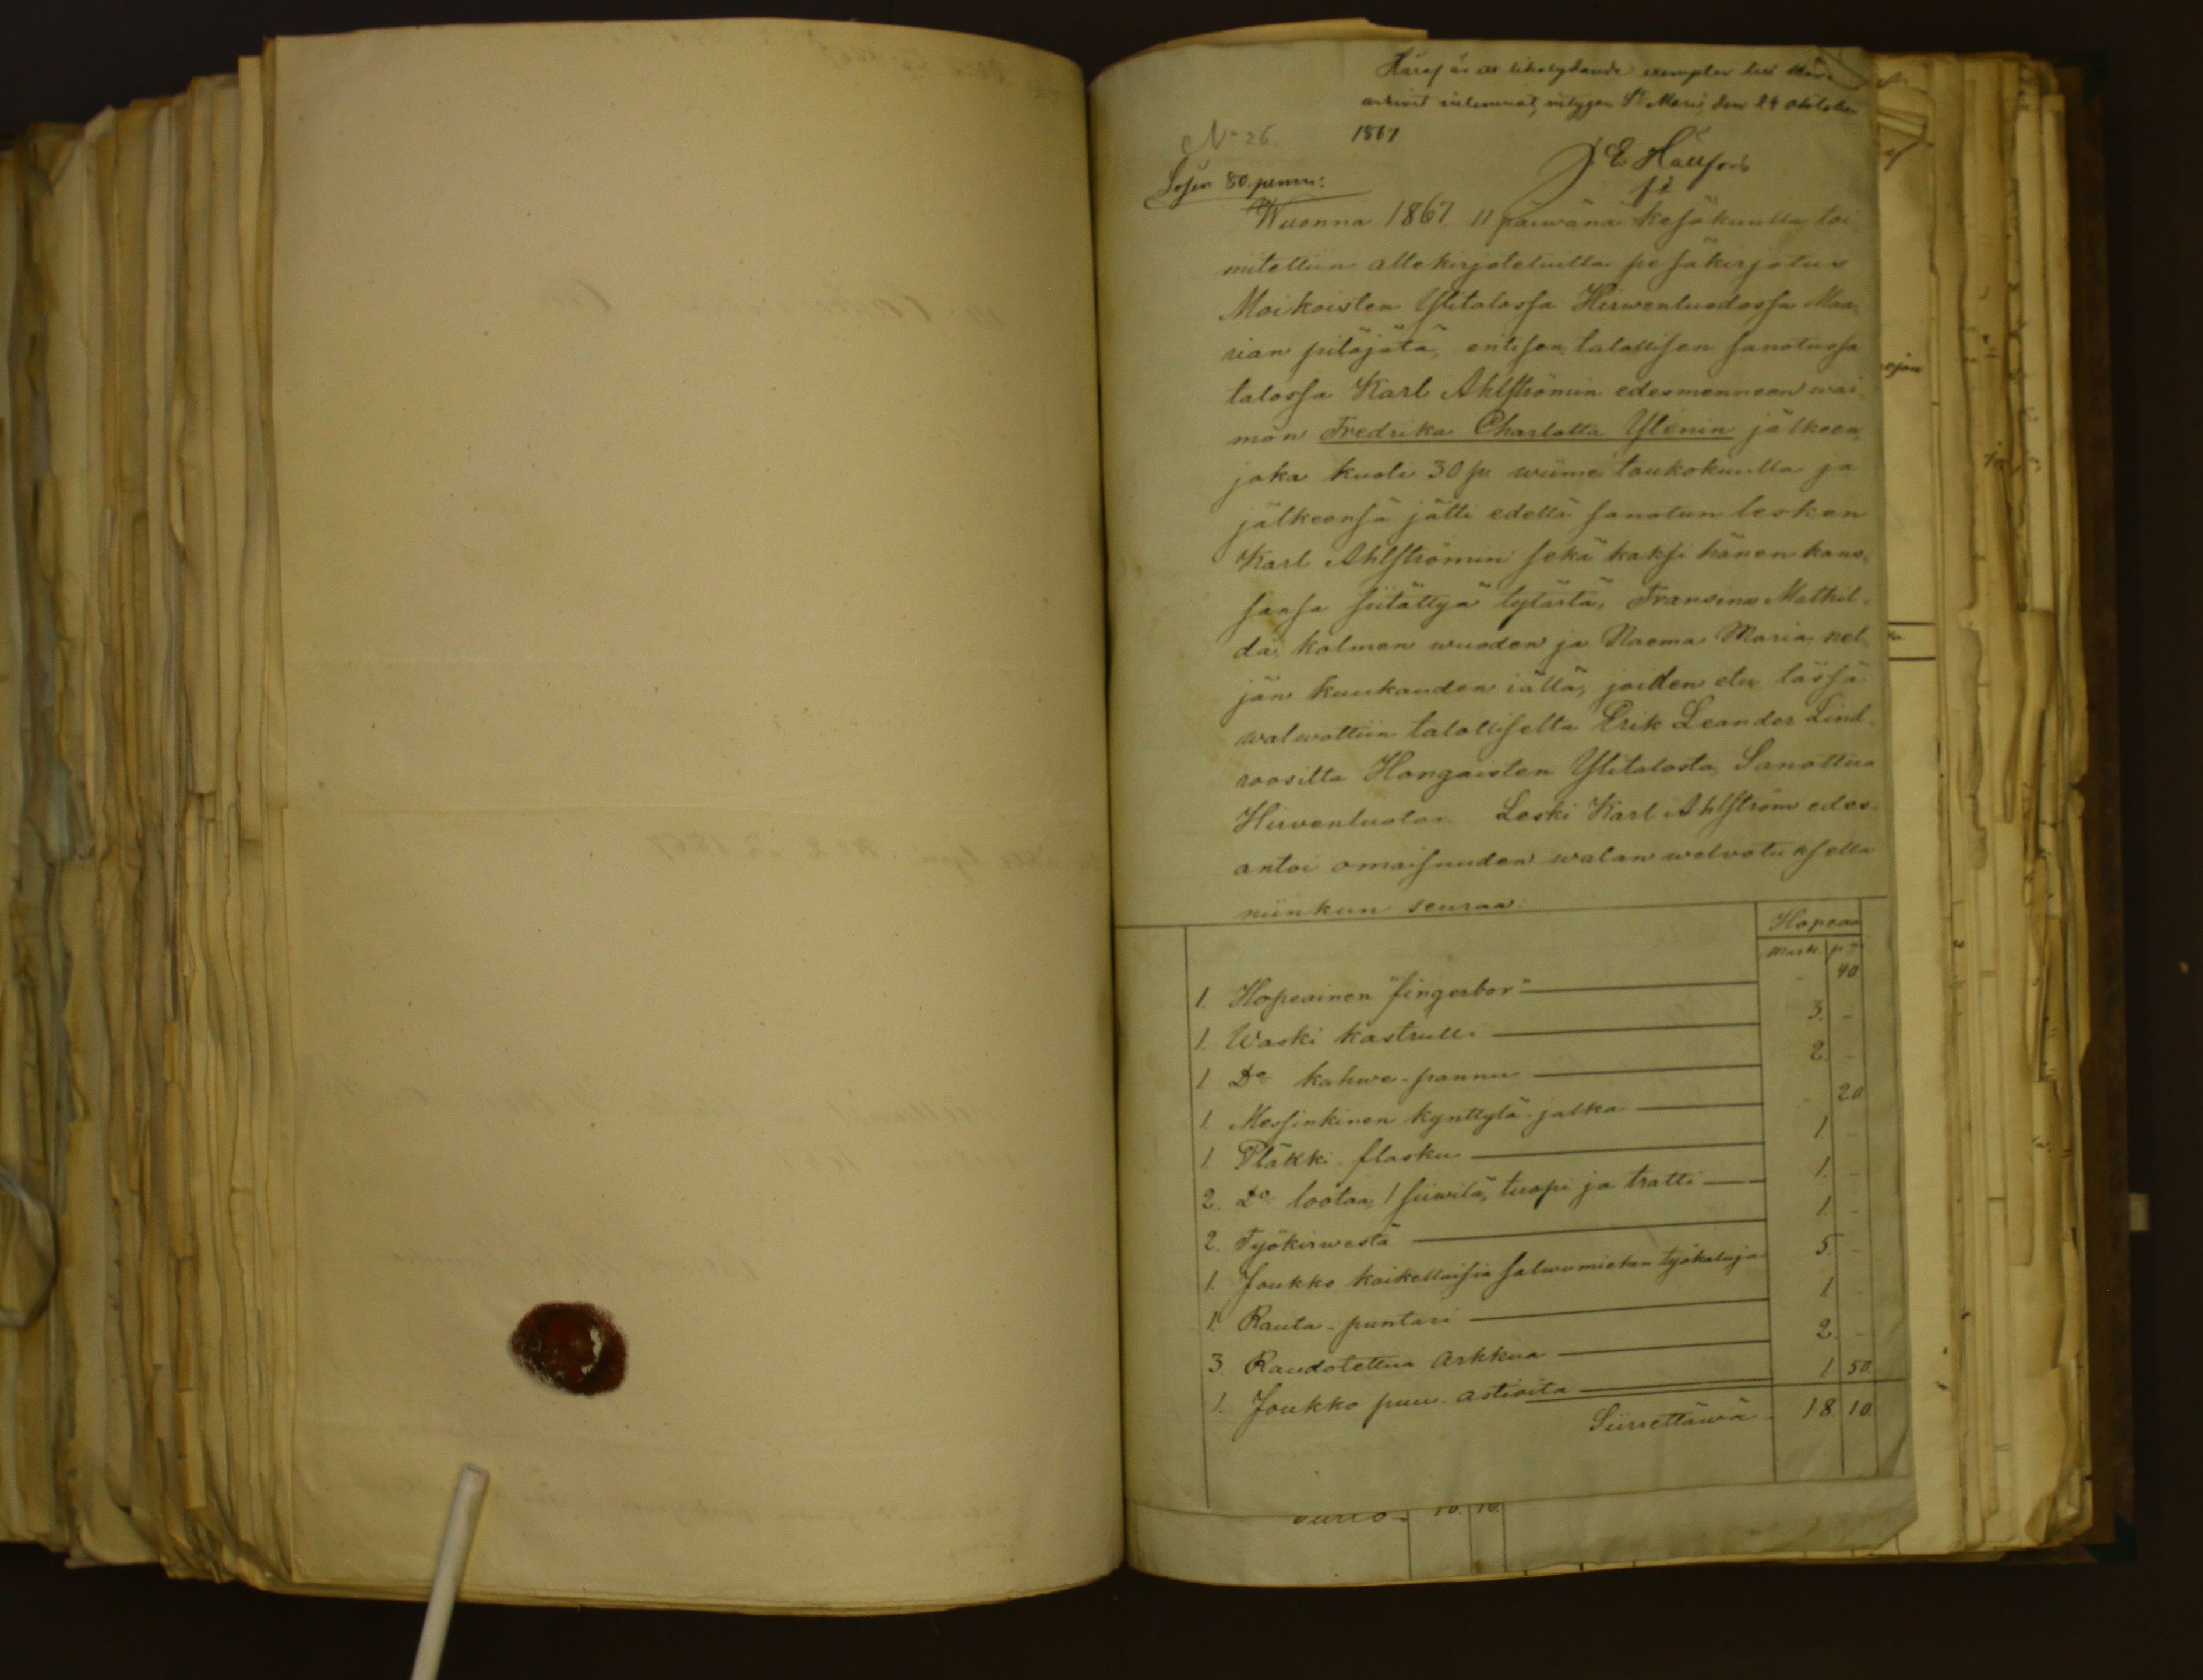 Häraf är ett likalydande exemplar till Här.
arkivet inlemnat, intygar St Marie, den 24 Oktober
1867
No 26.
J E Hallfors
Lösen 80. penni:
Wuonna 1867. 11 päiwänä kesäkuulla toi
mitettiin allekirjoteluilla pesäkirjotus
Moikoisten Ylitalossa Hirwenluodossa Maa-
rian pitäjätä, entisen talollisen sanotussa
talossa Karl Ahlströmin edesmenneen wai-
mon Fredrika Charlotta Ylénin jälkeen,
joka kuoli 30 p. wiime toukokuulla ja
jälkeensä jätti edellä sanotun lesken
Karl Ahlströmin sekä kaksi hänen kans-
sansa siitättyä tytärtä, Fransina Mathil-
da kolmen wuoden ja Naema Maria nel-
jän kuukauden iällä, joitten etu tässä
walwottiin talolliselta Erik Leander Lind-
roosilta Hongaisten Ylitalosta, Sanottua
Hirvenluotoa. Leski Karl Ahlström edes-
antoi omaisuuden walan welvotuksella
niinkun seuraa:
Hopeaa
Mark. p:
1. Hopeainen "fingerbor" - 40
1. Waski kastrulli 3. -
1 Do kahwe-pannu 2. -
1. Messinkinen kynttylä-jalka - 20.
1. Pläkki flasku 1. -
2. Do lootaa, 1 siiwilä, tuopi ja tratti 1. -
2. Työkirwestä 1 -
1. Joukko kaikellaisia salwumiehen työkaluja 5. -
1. Rauta-puntari 1 -
3. Raudotettua Arkkua 2. -
1. Joukko puu-astioita 1 50.
Siirrettäwä - 18. 10.